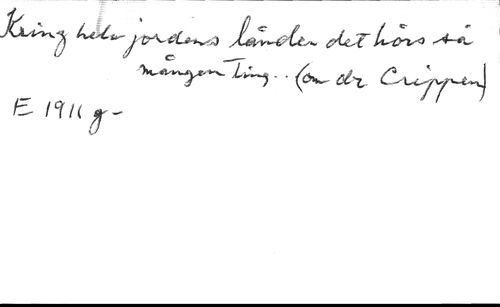 Kring hela jordens länder det hörs så
mången Ting.. (om dr Crippen)
E 1911 g-